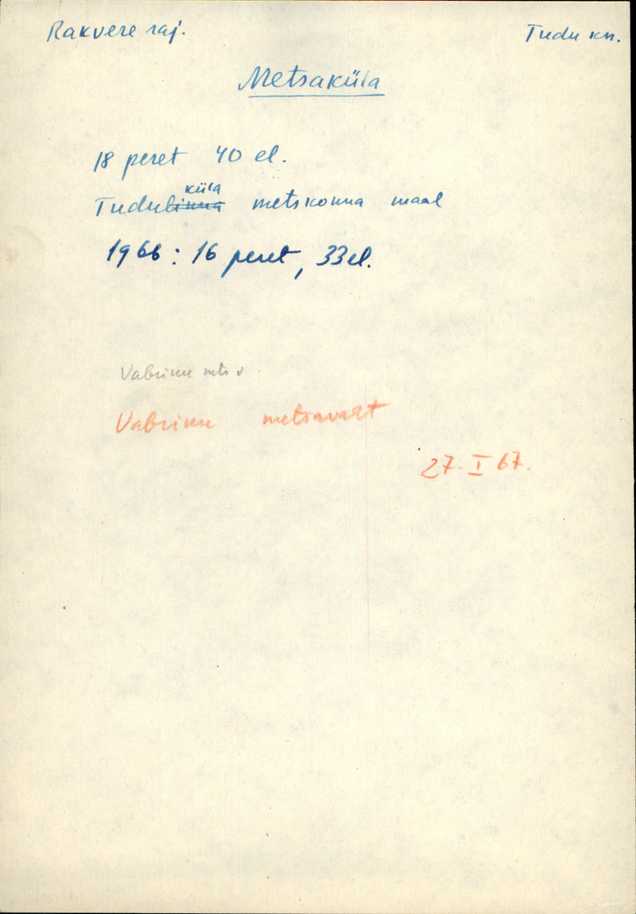 Rakvere raj. Tudu kn.
Metsaküla
18 peret 40 el.
küla
Tudulinna metskonna maal
1966: 16 peret, 33 el.
Vabrinu mts v
Vabrinu metsavaht
27. I 67.